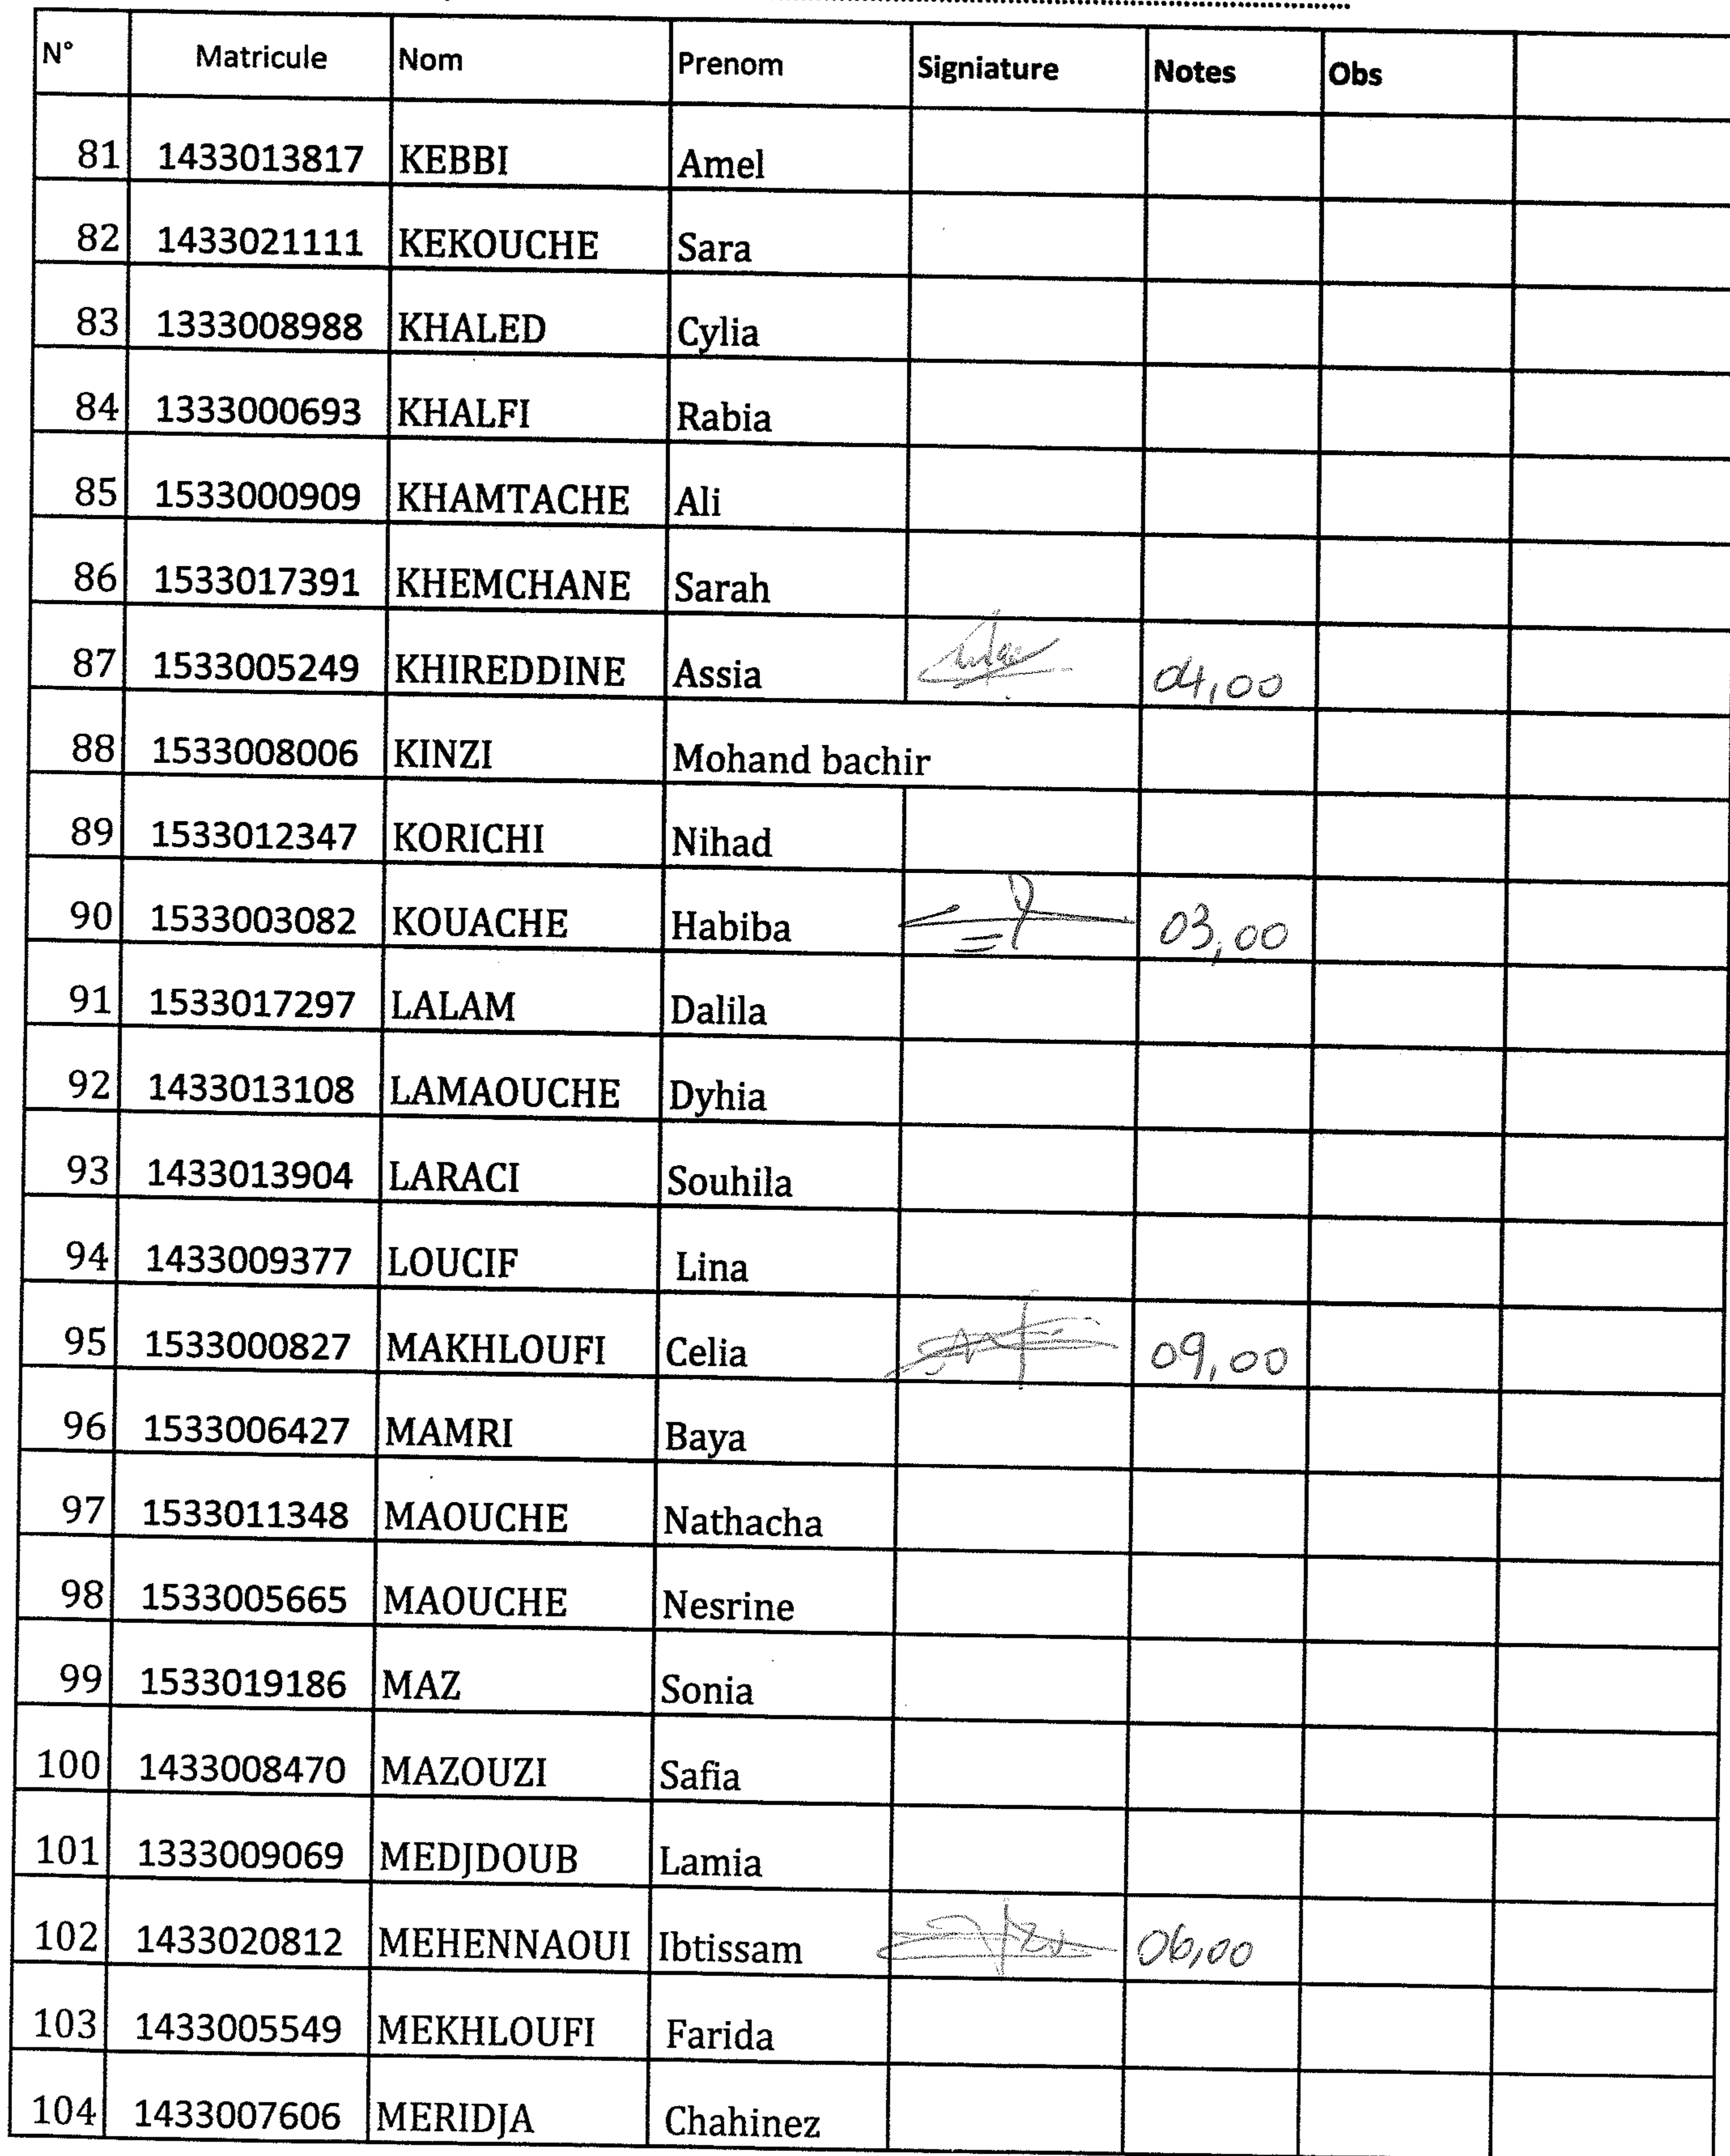 N° Matricule Nom Prenom Signiature Notes Obs
81 1433013817 KEBBI Amel
82 1433021111 KEKOUCHE Sara
83 1333008988 KHALED Cylia
84 1333000693 KHALFI Rabia
85 1533000909 KHAMTACHE Ali
86 1533017391 KHEMCHANE Sarah
87 1533005249 KHIREDDINE Assia 04,00
88 1533008006 KINZI Mohand bachir
89 1533012347 KORICHI Nihad
90 1533003082 KOUACHE Habiba 03,00
91 1533017297 LALAM Dalila
92 1433013108 LAMAOUCHE Dyhia
93 1433013904 LARACI Souhila
94 1433009377 LOUCIF Lina
95 1533000827 MAKHLOUFI Celia 09,00
96 1533006427 MAMRI Baya
97 1533011348 MAOUCHE Nathacha
98 1533005665 MAOUCHE Nesrine
99 1533019186 MAZ Sonia
100 1433008470 MAZOUZI Safia
101 1333009069 MEDJDOUB Lamia
102 1433020812 MEHENNAOUI Ibtissam 06,00
103 1433005549 MEKHLOUFI Farida
104 1433007606 MERIDJA Chahinez